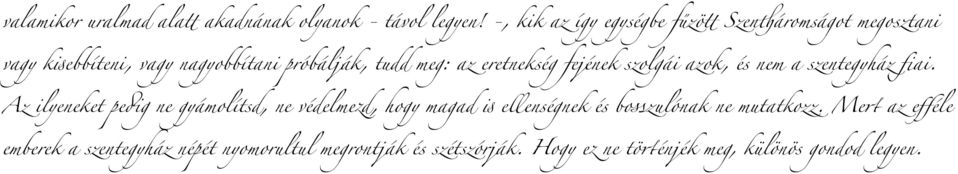 valamikor uralmad alatt akadnának olyanok - távol legyen! -, kik az így egységbe fűzött Szentháromságot megosztani
vagy kisebbíteni, vagy nagyobbítani próbálják, tudd meg: az eretnekség fejének szolgái azok, és nem a szentegyház fiai.
Az ilyeneket pedig ne gyámolítsd, ne védelmezd, hogy magad is ellenségnek és bosszulónak ne mutatkozz. Mert az efféle
emberek a szentegyház népét nyomorultul megrontják és szétszórják. Hogy ez ne történjék meg, különös gondod legyen.